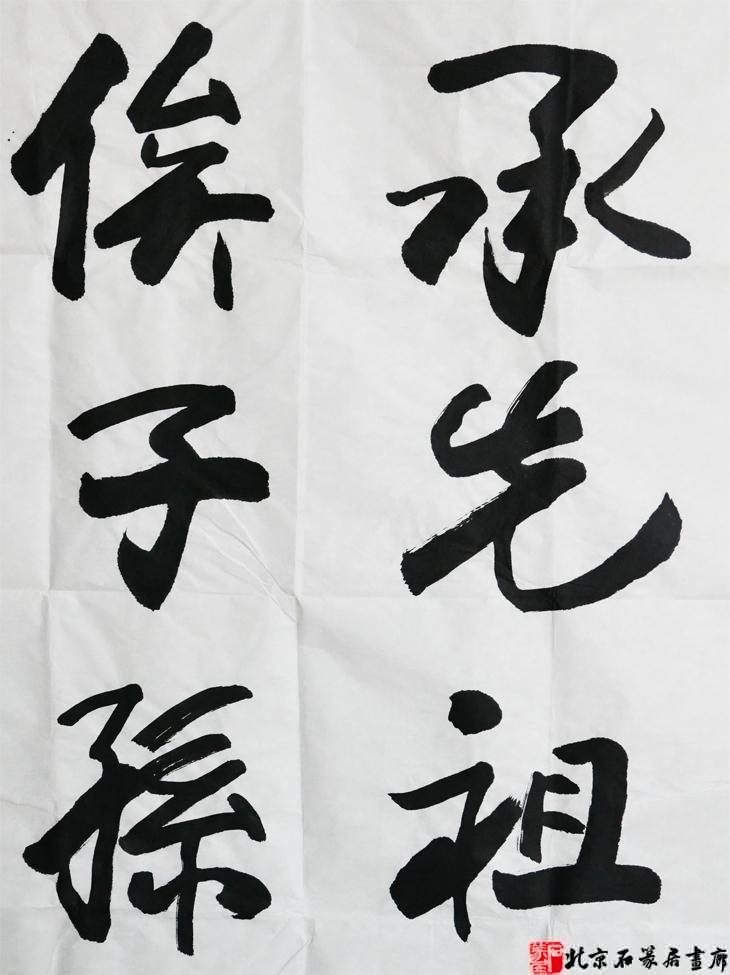 承先祖
俟子孫
北京石篆居畫廊